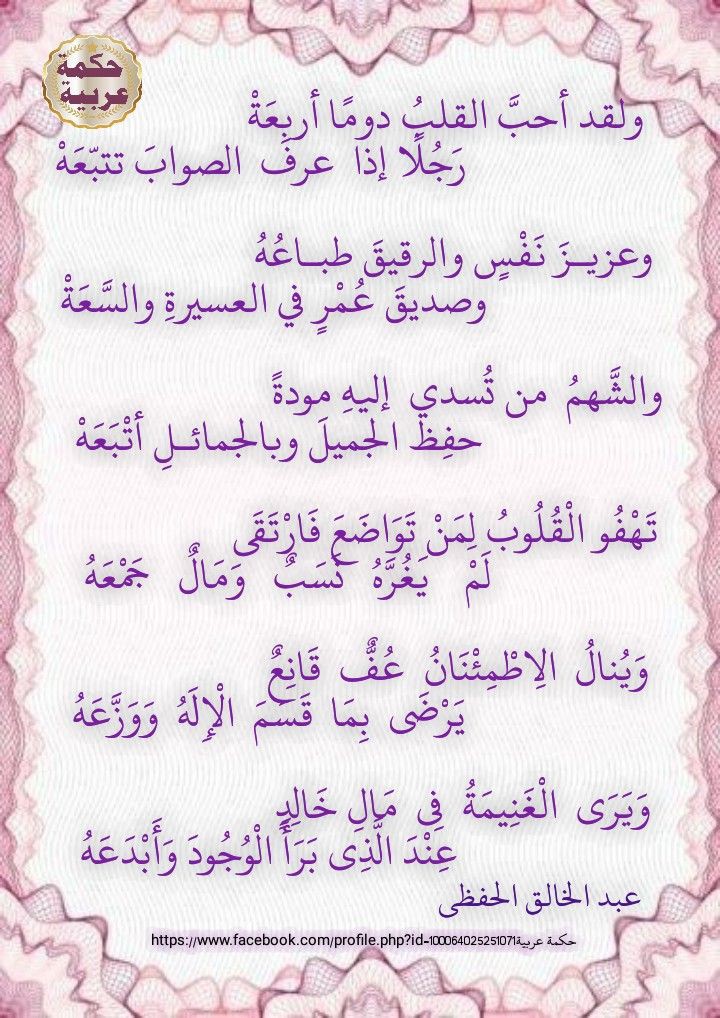 حكمة
عربية
ولقد أحبَّ القلبُ دومًا أربعَةْ
رَجُلًا إذا عرفَ الصوابَ تتبّعَهْ
وعزيــزَ نَفْسٍ والرقيقَ طبــاعُهُ
وصديقَ عُمْرٍ في العسيرةِ والسَّعَةْ
والشَّهمُ من تُسدي إليهِ مودةً
حفِظ الجميلَ وبالجمائــلِ أتْبَعَهْ
تَهْفُو الْقُلُوبُ لِمَنْ تَوَاضَعَ فَارْتَقَى
لَمْ يَغُرَّهُ نَسَبٌ وَمَالٌ جَمْعَهُ
وَيُنالُ الِاطْمِئْنَانُ عُفٌّ قَانِعٌ
يَرْضَى بِمَا قَسَمَ الْإِلَهُ وَوَزَّعَهُ
وَيَرَى الْغَنِيمَةُ فِى مَالِ خَالِدٍ
عِنْدَ الَّذِى بَرَأَ الْوُجُودَ وَأَبْدَعَهُ
عبد الخالق الحفظى
حكمة عربية https://www.facebook.com/profile.php?id-100064025251071